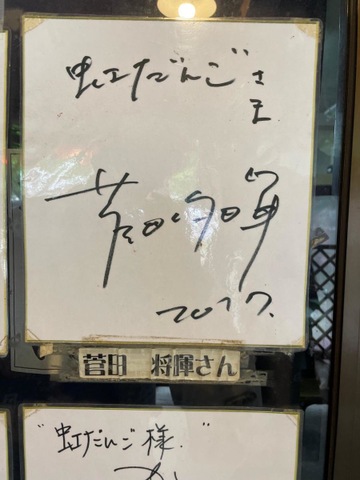 虹だんごさま
菅田将暉
2017.
菅田 将暉さん
"虹だんご様."